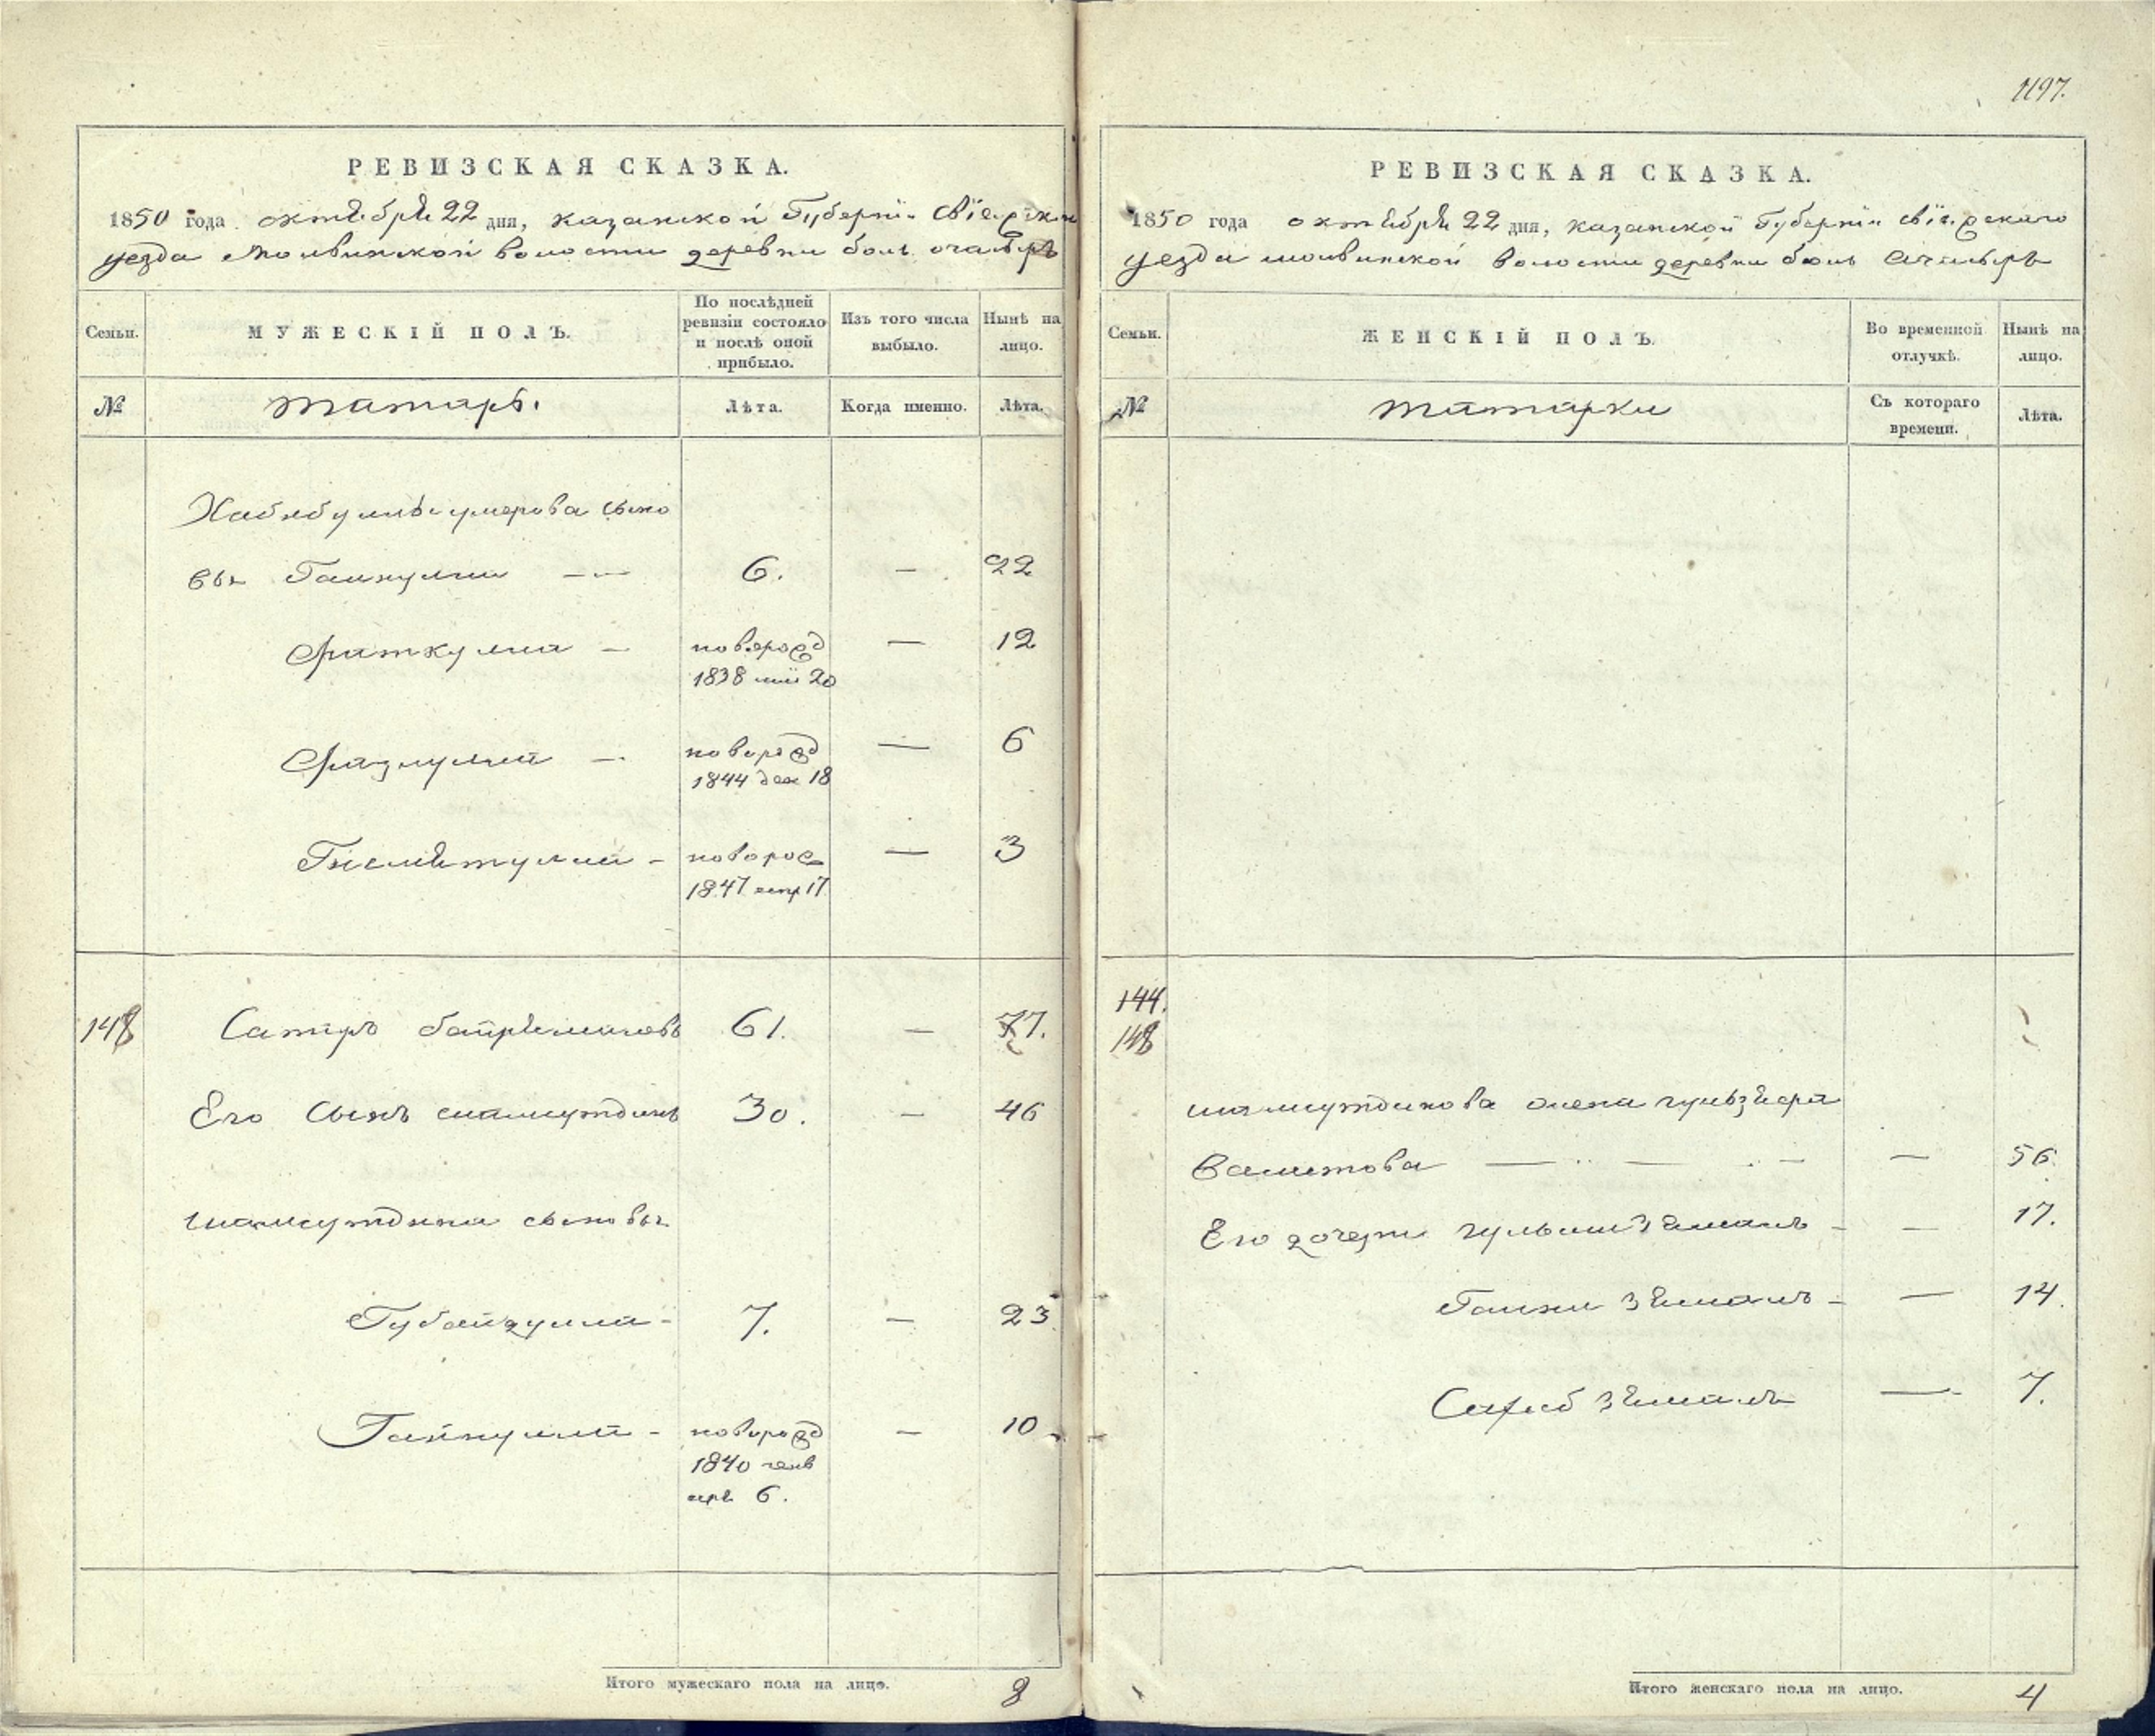 1197.
РЕВИЗСКАЯ СКАЗКА.
1850 года октября 22 дня, казанской Губерніи Свіяжско
уезда молвинской волости деревни боль. ачасыръ
Семьи.
МУЖЕСКІЙ ПОЛЪ.
По послѣдней ревизіи состояло и послѣ оной прибыло.
Изъ того числа выбыло.
Нынѣ на лицо.
№
татаръ.
Лѣта.
Когда именно.
Лѣта.
Хабибуллы умерова сыно
вья Гайнулла — 6. — 22
Фаткулла — новорожд — 12
1838 20
Фазлулла — новорожд — 6
1844 дек 18
новорож — 3
1847 17
148 Сатыръ 61. — 77.
Его Сынъ шамсутдинъ 30. — 46
шамсутдина сыновья
Губайдулла - 7. — 23
Гайнулла - новорожд — 10
1840 генв
аря 6.
Итого мужескаго пола на лицо. 8
РЕВИЗСКАЯ СКАЗКА.
1850 года октября 22 дня, казанской Губерніи свіяжскаго
уезда молвинской волости деревни боль ачасыръ
Семьи.
ЖЕНСКІЙ ПОЛЪ.
Во временной отлучкѣ.
Нынѣ на лицо.
№
татарки
Съ котораго времени.
Лѣта.
144.
148
шамсутдинова жена
Валитова — — — 56.
Его дочери - — 17.
- — 14.
Сахиб — 7.
Итого женскаго пола на лицо. 4